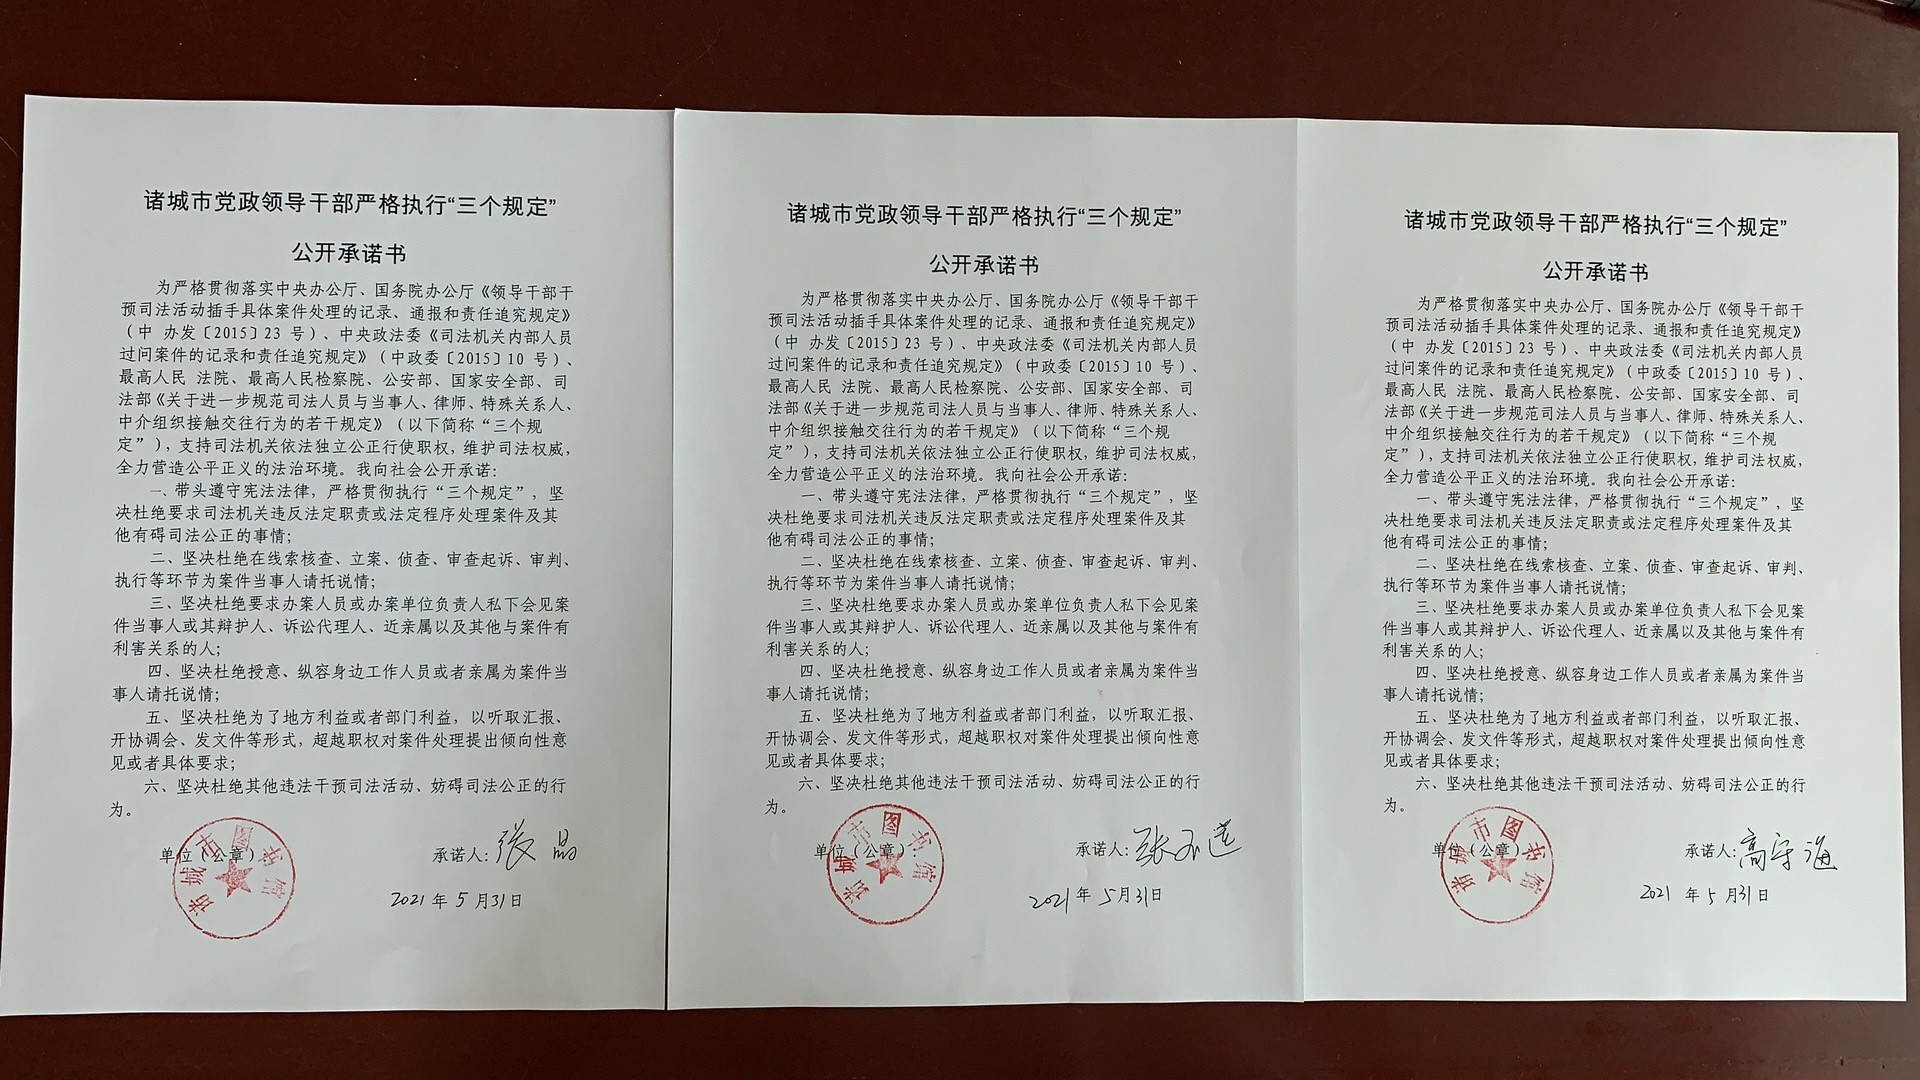 诸城市党政领导干部严格执行“三个规定”
公开承诺书
为严格贯彻落实中央办公厅、国务院办公厅《领导干部干
预司法活动插手具体案件处理的记录、通报和责任追究规定》
（中 办发〔2015〕23 号）、中央政法委《司法机关内部人员
过问案件的记录和责任追究规定》（中政委〔2015〕10 号）、
最高人民 法院、最高人民检察院、公安部、国家安全部、司
法部《关于进一步规范司法人员与当事人、律师、特殊关系人、
中介组织接触交往行为的若干规定》（以下简称“三个规
定”），支持司法机关依法独立公正行使职权，维护司法权威，
全力营造公平正义的法治环境。我向社会公开承诺：
一、带头遵守宪法法律，严格贯彻执行“三个规定”，坚
决杜绝要求司法机关违反法定职责或法定程序处理案件及其
他有碍司法公正的事情；
二、坚决杜绝在线索核查、立案、侦查、审查起诉、审判、
执行等环节为案件当事人请托说情；
三、坚决杜绝要求办案人员或办案单位负责人私下会见案
件当事人或其辩护人、诉讼代理人、近亲属以及其他与案件有
利害关系的人；
四、坚决杜绝授意、纵容身边工作人员或者亲属为案件当
事人请托说情；
五、坚决杜绝为了地方利益或者部门利益，以听取汇报、
开协调会、发文件等形式，超越职权对案件处理提出倾向性意
见或者具体要求；
六、坚决杜绝其他违法干预司法活动、妨碍司法公正的行
为。
单位（公章）： 承诺人：张晶
诸城市图书馆
2021 年 5 月31日
诸城市党政领导干部严格执行“三个规定”
公开承诺书
为严格贯彻落实中央办公厅、国务院办公厅《领导干部干
预司法活动插手具体案件处理的记录、通报和责任追究规定》
（中 办发〔2015〕23 号）、中央政法委《司法机关内部人员
过问案件的记录和责任追究规定》（中政委〔2015〕10 号）、
最高人民 法院、最高人民检察院、公安部、国家安全部、司
法部《关于进一步规范司法人员与当事人、律师、特殊关系人、
中介组织接触交往行为的若干规定》（以下简称“三个规
定”），支持司法机关依法独立公正行使职权，维护司法权威，
全力营造公平正义的法治环境。我向社会公开承诺：
一、带头遵守宪法法律，严格贯彻执行“三个规定”，坚
决杜绝要求司法机关违反法定职责或法定程序处理案件及其
他有碍司法公正的事情；
二、坚决杜绝在线索核查、立案、侦查、审查起诉、审判、
执行等环节为案件当事人请托说情；
三、坚决杜绝要求办案人员或办案单位负责人私下会见案
件当事人或其辩护人、诉讼代理人、近亲属以及其他与案件有
利害关系的人；
四、坚决杜绝授意、纵容身边工作人员或者亲属为案件当
事人请托说情；
五、坚决杜绝为了地方利益或者部门利益，以听取汇报、
开协调会、发文件等形式，超越职权对案件处理提出倾向性意
见或者具体要求；
六、坚决杜绝其他违法干预司法活动、妨碍司法公正的行
为。
单位（公章）： 承诺人：张
诸城市图书馆
2021 年 5月31日
诸城市党政领导干部严格执行“三个规定”
公开承诺书
为严格贯彻落实中央办公厅、国务院办公厅《领导干部干
预司法活动插手具体案件处理的记录、通报和责任追究规定》
（中 办发〔2015〕23 号）、中央政法委《司法机关内部人员
过问案件的记录和责任追究规定》（中政委〔2015〕10 号）、
最高人民 法院、最高人民检察院、公安部、国家安全部、司
法部《关于进一步规范司法人员与当事人、律师、特殊关系人、
中介组织接触交往行为的若干规定》（以下简称“三个规
定”），支持司法机关依法独立公正行使职权，维护司法权威，
全力营造公平正义的法治环境。我向社会公开承诺：
一、带头遵守宪法法律，严格贯彻执行“三个规定”，坚
决杜绝要求司法机关违反法定职责或法定程序处理案件及其
他有碍司法公正的事情；
二、坚决杜绝在线索核查、立案、侦查、审查起诉、审判、
执行等环节为案件当事人请托说情；
三、坚决杜绝要求办案人员或办案单位负责人私下会见案
件当事人或其辩护人、诉讼代理人、近亲属以及其他与案件有
利害关系的人；
四、坚决杜绝授意、纵容身边工作人员或者亲属为案件当
事人请托说情；
五、坚决杜绝为了地方利益或者部门利益，以听取汇报、
开协调会、发文件等形式，超越职权对案件处理提出倾向性意
见或者具体要求；
六、坚决杜绝其他违法干预司法活动、妨碍司法公正的行
为。
单位（公章）： 承诺人：高守海
诸城市图书馆
2021 年 5 月31日